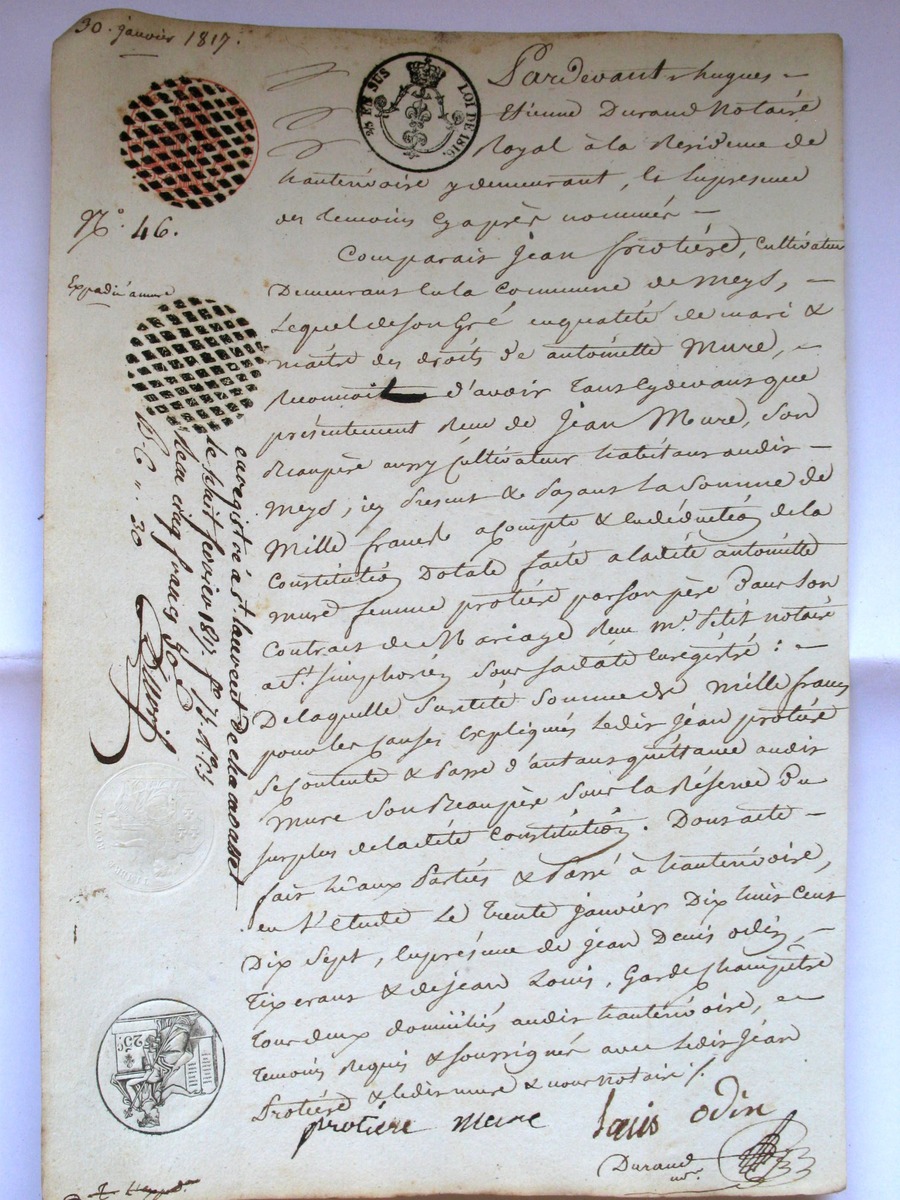 30. janvier 1817.
EN SUS
LOI DE 1816.
N.° 46.
Pardevant hugues
Etienne Durand Notaire
Royal à la Residence de
hauterivoire y demeurant, En presence
des temoins cy après nommés
Comparait Jean protière, Cultivateur
Demeurant en la Commune de Meys,
Lequel de son Gré en qualité de mari &
maitre des droits de antoinette Mure,
Reconnait d'avoir Tant cydevant que
présentement Recu de Jean Mure, son
Beaupère aussy Cultivateur habitant audit
Meys, icy Present & Payant La Somme de
Mille francs a compte & en déduction de la
Constitution Dotale faite a ladite antoinette
mure femme protière par son père Dans Son
Contrat de Mariage Recu m.e Petit notaire
a St. simphorien sous sa date Enregistré :
De laquelle Susdite Somme de mille francs
pour les causes Expliqués Ledit Jean protière
Se Contente & Passe d'autant quittance audit
Mure Son Beaupère Sous La Réserve Du
surplus de ladite Constitution. Dont acte
fait Lu aux Parties & Passé à hauterivoire,
en L'étude Le Trente janvier Dix huit Cent
Dix Sept, En presence de jean Denis odin,
Tixerant & de jean Louis, Garde Champêtre
Tous deux domiciliés audit hauterivoire,
Temoins Requis & Soussignés avec Ledit Jean
Protière & ledit mure & nous notaire
protière mure louis odin
Durand
nore.
enregistré à St. laurent De chamousset
le huit fevrier 1817. fo.
Recu cinq francs 50 c
25c.